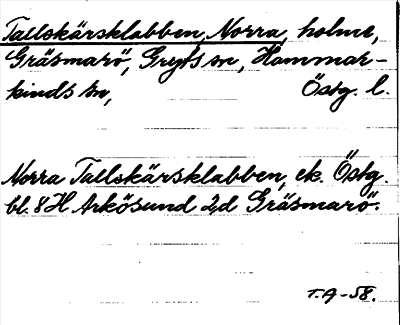 Tallskärsklabben, Norra, holme,
Gräsmarö, Gryts sn, Hammar-
kinds hd, Östg. l.
Norra Tallskärsklabben, ek. Östg.
bl. 8 H Arkösund 2d Gräsmarö.
T.A-58.